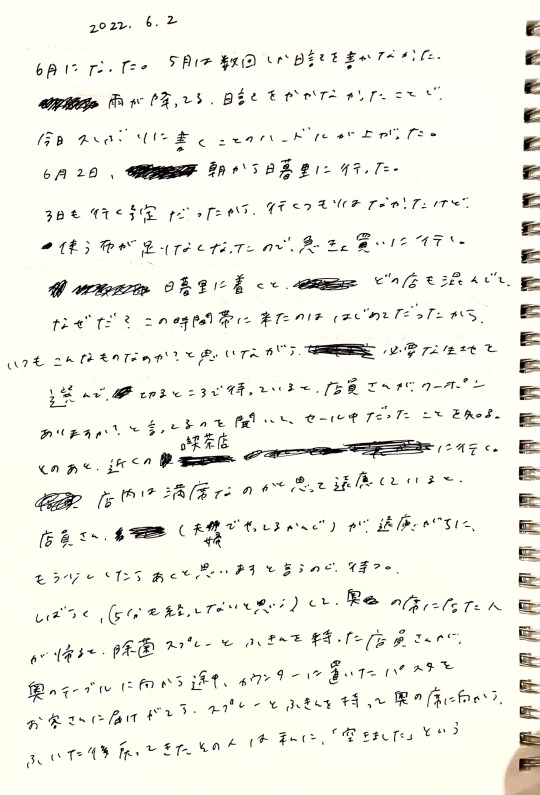 2022. 6. 2
6月になった。5月は数回しか日記を書かなかった。
雨が降ってる。日記をかかなかったことで、
今日久しぶりに書くことのハードルが上がった。
6月2日、朝から日暮里に行った。
3日も行く予定だったから、行くつもりはなかったけど、
使う布が足りなくなったので、急きょ買いに行く。
日暮里に着くと、どの店も混んでて、
なぜだ？この時間帯に来たのははじめてだったから、
いつもこんなものなのか？と思いながら、必要な生地を
選んで、切るところで待っていると、店員さんが、クーポン
ありますか？と言ってるのを聞いて、セール中だったことを知る。
そのあと、近くの喫茶店に行く。
店内は満席なのかと思って遠慮していると、
店員さん、(夫婦でやってるかんじ)が、遠慮がちに、
もう少ししたらあくと思いますと言うので、待つ。
しばらく、(5分も経ってないと思う)して、奥の席に居た人
が帰ると、除菌スプレーとふきんを持った店員さんが、
奥のテーブルに向かう途中、カウンターに置いたパスタを
お客さんに届けがてら、スプレーとふきんを持って奥の席に向かう。
ふいた後戻ってきたその人は私に、「空きました」という